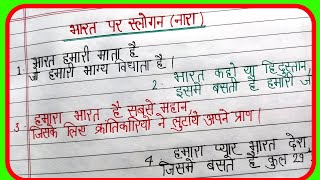 भारत पर स्लोगन (नारा)
1. भारत हमारी माता है
जो हमारी भाग्य विधाता है।
2. भारत कहो या हिंदुस्तान,
इसमें बसती है हमारी
3. हमारा भारत है सबसे महान,
जिसके लिए क्रांतिकारियों ने लुटाये अपने प्राण।
4. हमारा प्यार भारत देश,
जिसमें बसते है कुल 29